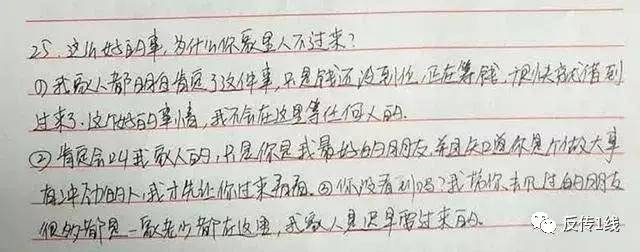 25. 这么好的事,为什么你家里人不过来?
①我家人都明白肯定了这件事,只是钱还没到位,正在筹钱,很快就借到
过来了.这个好的事情,我不会在这里等任何人的.
②肯定会叫我家人的,只是你是我最好的朋友.并且知道你是个做大事
有冲劲的人,我才先让你过来看看.③你没看到吗?我带你去见过的朋友
很多都是一家老少都在这里,我家人是迟早要过来的.
反传1线